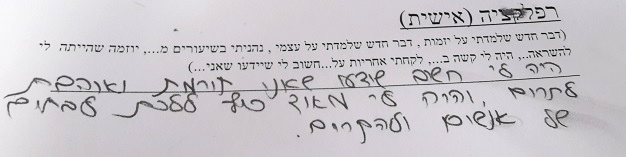 רפלקציה (אישית)
(דבר חדש שלמדתי על יזמות , דבר חדש שלמדתי על עצמי , נהניתי בשיעורים מ..., יוזמה שהייתה לי
להשראה.., היה לי קשה ב..., לקחתי אחריות על...חשוב לי שיידעו שאני...)
היה לי חשוב שידעו שאני תורמת ואוהבת
לתרום , והיה לי מאוד כיף ללכת לבתים
של אנשים ולהתרים.